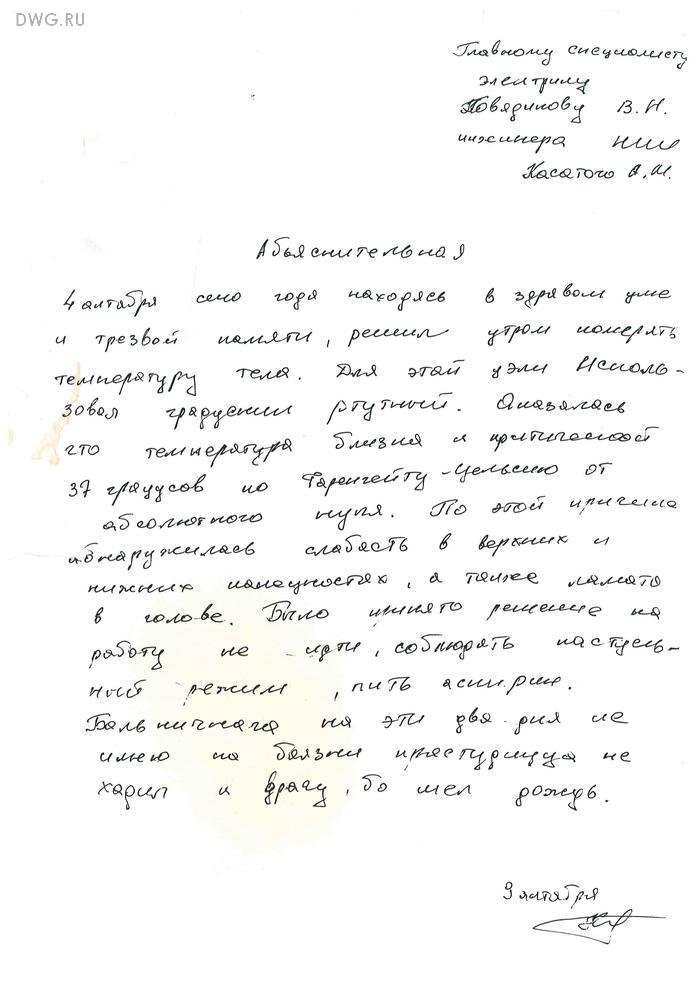 DWG.RU
Главному специалисту
электрику
Повядикову В.Н.
инжинера
Касатого А.И.
Абьяснительная
4 алтября сего года находясь в здравом уме
и трезвой памяти, решил утром померять
температуру тела. Для этай цэли Исполь-
зовал градусник ртутный. Оказалась
что температура близка к критической
37 градусов по Фаренгейту-Цельсию от
абсолютного нуля. По этой причине
абнаружилась слабасть в верхних и
нижних канецностях, а также ламато
в голове. Было принято решение на
работу не идти, соблюдать пастель-
ный режим, пить аспирин.
Бальничнага на эти два дня не
имею па боязни прастудицца не
хадил к врачу, бо шел дождь.
9 октября